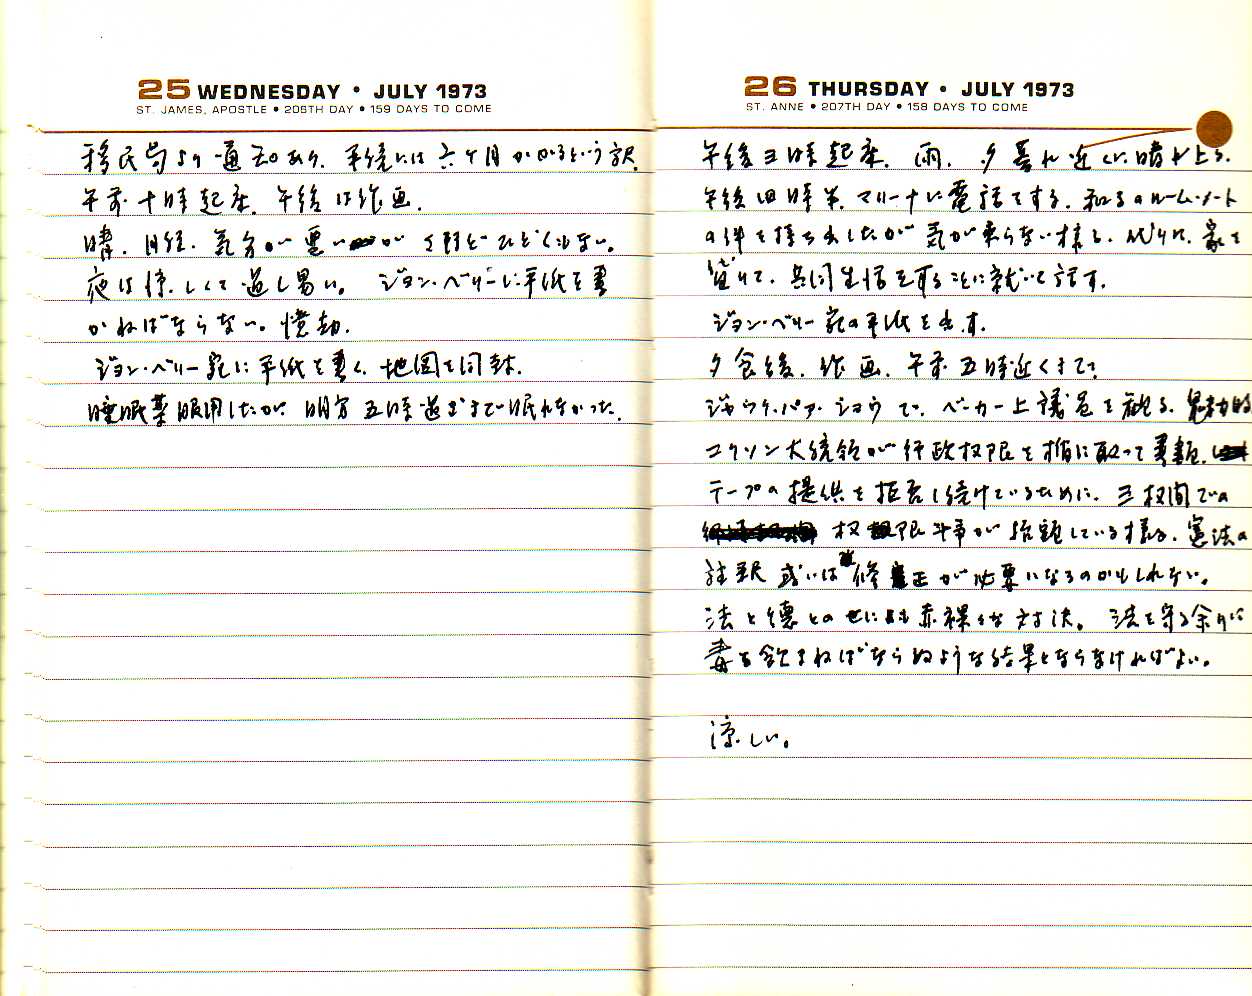 25 WEDNESDAY • JULY 1973
ST. JAMES, APOSTLE • 206TH DAY • 159 DAYS TO COME
移民局より通知あり、手続には六ヶ月かかるという訳。
午前十時起床。午後は作画。
晴。月経。気分が悪いが さほどひどくもない。
夜は涼しくて過し易い。 ジョン・ベリーに手紙を書
かねばならない。億劫。
ジョン・ベリー宛に手紙を書く。地図を同封。
睡眠薬服用したが、明方五時過ぎまで眠れなかった。
26 THURSDAY • JULY 1973
ST. ANNE • 207TH DAY • 158 DAYS TO COME
午後三時起床。雨。夕暮れ近くに晴れ上る。
午後四時半、マリーナに電話をする。和子のルーム・メート
の件を持ち出したが気が乗らない様子。代りに、家を
借りて、共同生活をすることに就いて話す。
ジョン・ベリー宛の手紙を出す。
夕食後、作画。午前五時近くまで。
ジャック・パァ・ショウで、ベーカー上議員を観る。魅力的
ニクソン大統領が行政权限を楯に取って書類、
テープの提供を拒否し続けているために、三权間での
权限斗争が始題している様子。憲法の
註釈或いは修正が必要になるのかもしれない。
法と徳との 赤裸々な対決。 法を守る余りに
毒を飲まねばならぬような結果とならなければよい。
涼しい。